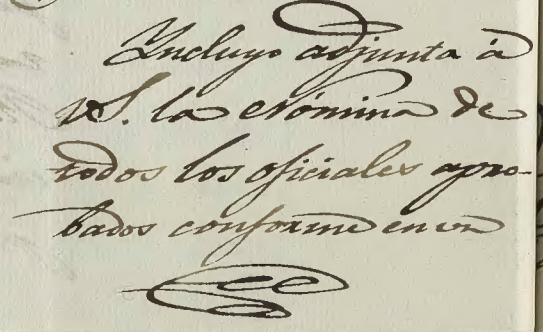 Incluyo adjunta à
VS. la Nómina de
todos los oficiales apro-
bados conforme en un